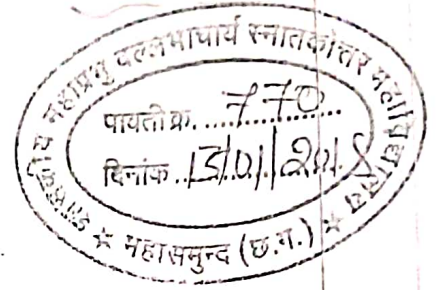 शासकीय महाप्रभु वल्लभाचार्य स्नातकोत्तर महाविद्यालय
पावती क्र. ....770....
दिनांक ..15/01/2018
☆ महासमुन्द (छ.ग.) ☆